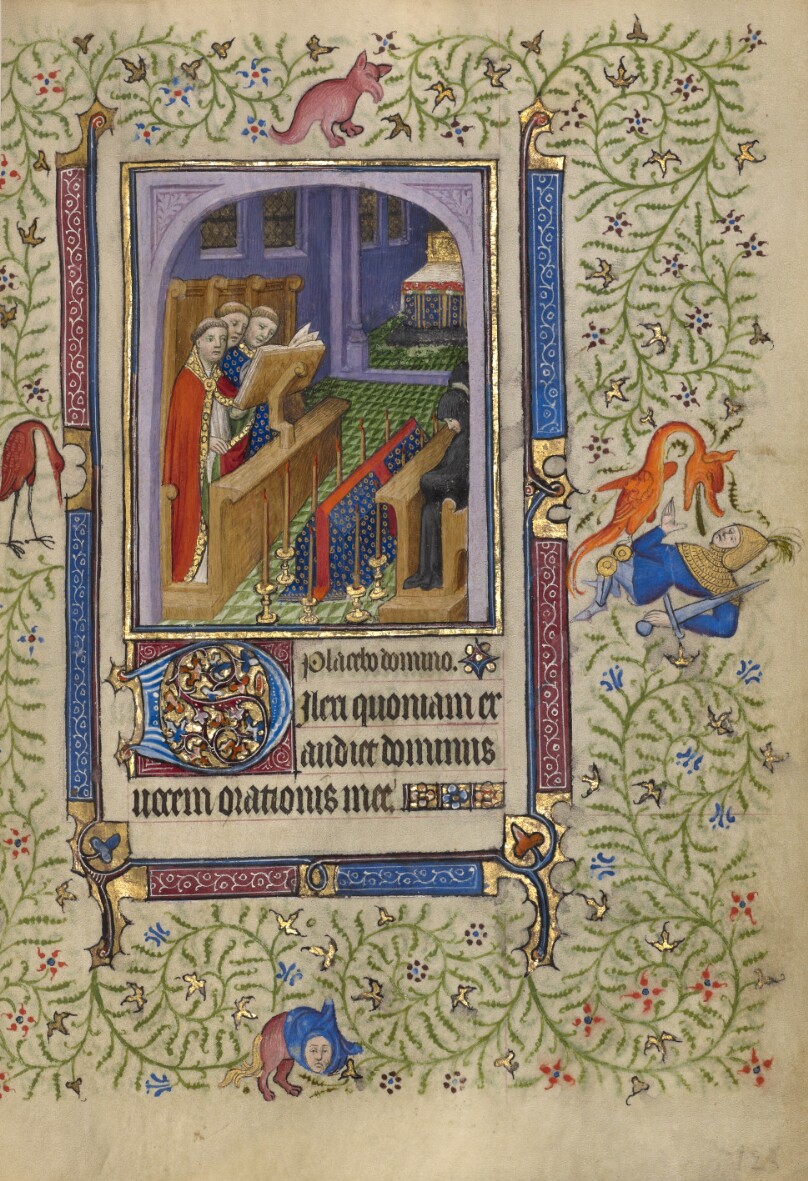 placebo domino.
Dilexi quoniam ex
audiet dominus
uocem orationis mee.
128